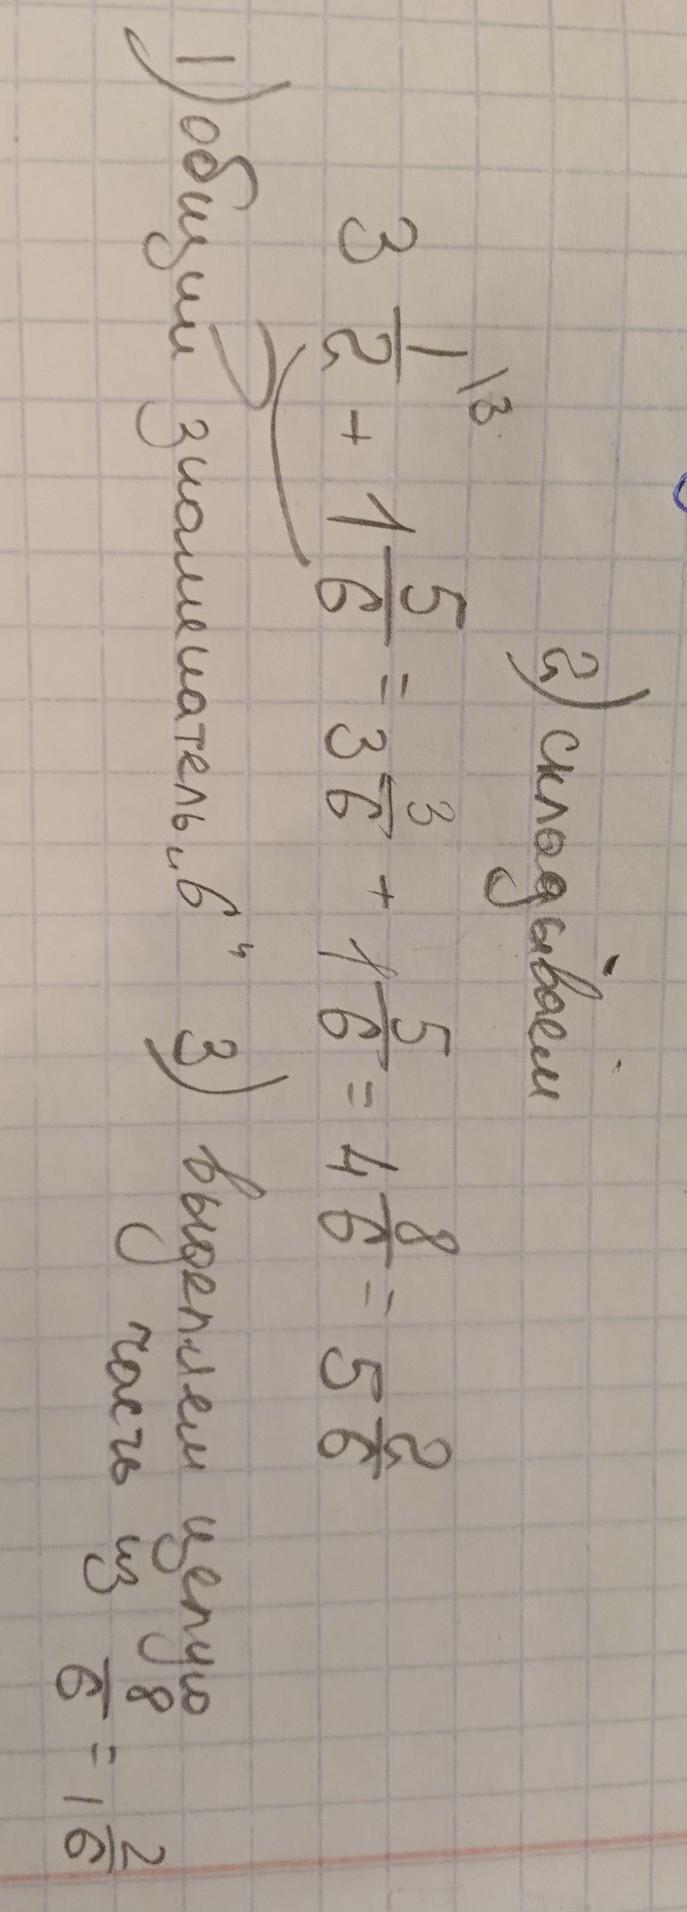 2) складываем
3 1/2 \3 + 1 5/6 = 3 3/6 + 1 5/6 = 4 8/6 = 5 2/6
1) общий знаменатель „6“ 3) выделяем целую
часть из 8/6 = 1 2/6